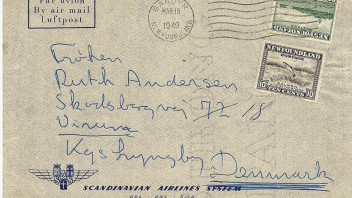 Par avion
By air mail
Luftpost
MAR 16
1949
NEWFOUNDLAND
NEWFOUNDLAND
10 TEN CENTS 10
Fröken
Ruth Andersen
Skodsborgvej 72 18
Virum
Kgs Lyngby Denmark
SCANDINAVIAN AIRLINES SYSTEM